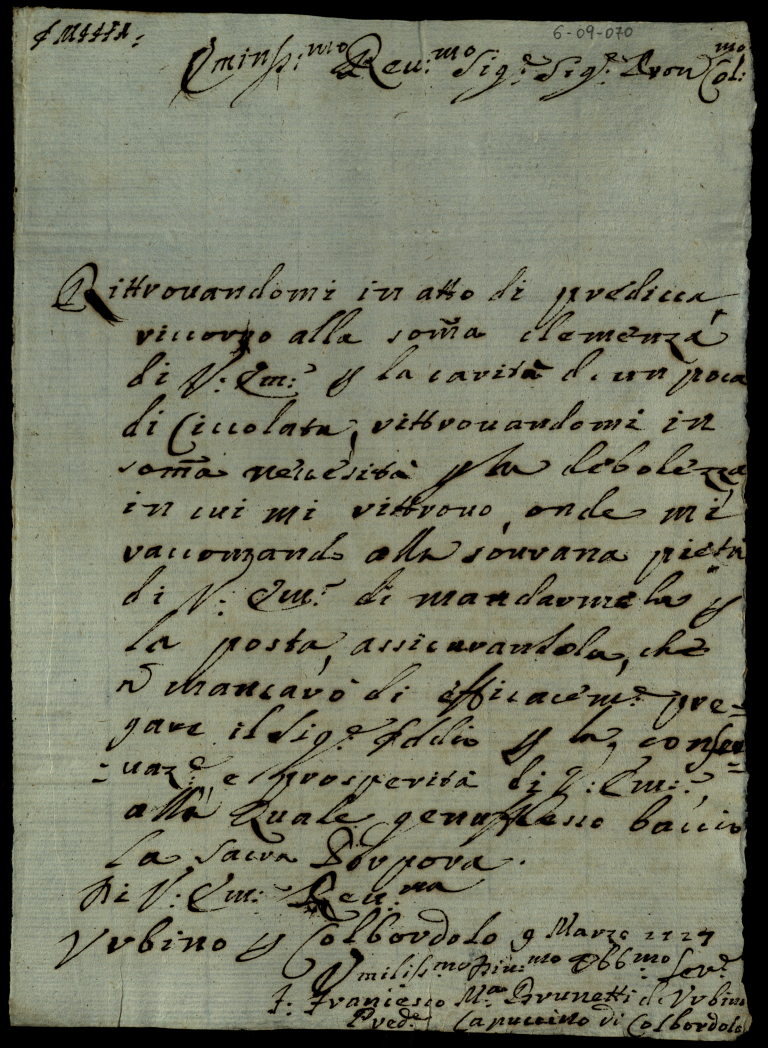 6-09-070
Emin:mo Reu:mo Sig.e Sig.e Pron Col:mo
Rittrouandomi in atto di predicca,
riccorro alla som̃a clemenza
di V: Em:e p la carità d un poca
di Ciccolata, rittrouandomi in
som̃a necesità p la debolezza
in cui mi rittrouo, onde mi
raccomando alla souurana pietà
di V: Em:e di mandarmela p
la posta, assicurandola, che
ñ mancarò di efficacem:e pre=
gare il Sig.e Iddio p la conser=
=uaz:e e prosperità di V: Em:e
alla Quale genuflesso baccio
la sacra Porpora.
Di V: Em: Reu:ma
Vrbino p Colbordolo 9 Marzo 1727
Vmiliss:mo Diu:mo Obb:mo Ser.e
F: Francesco M.a Brunetti di Vrbino
Pred.e Capuccino di Colbordolo